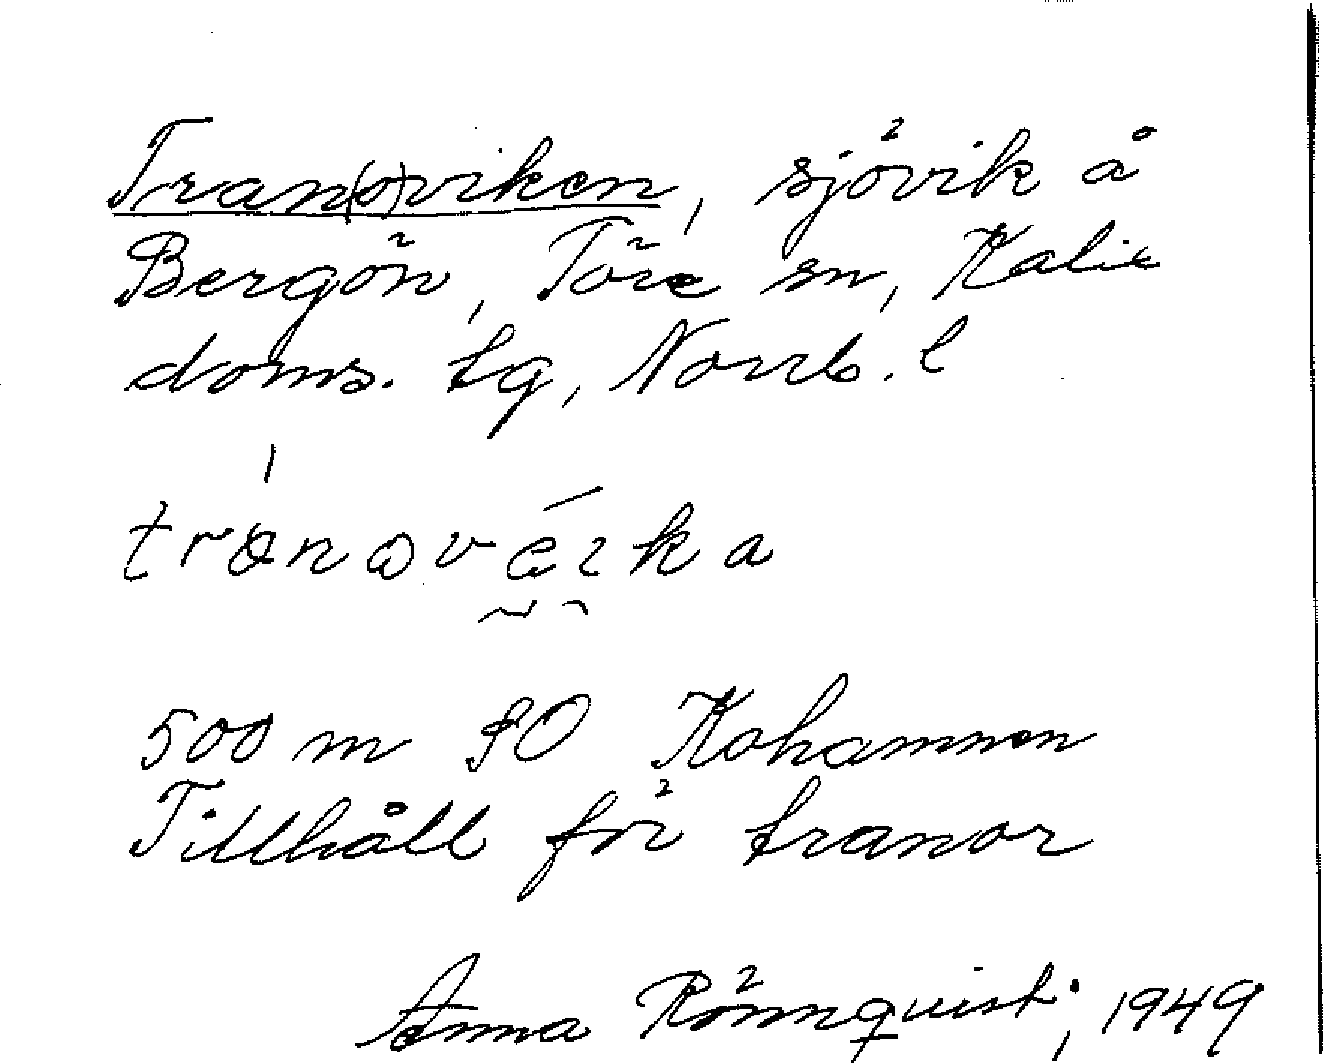 Tran(o)viken, sjövik å
Bergön, Töre sn, Kalix
doms. tg, Norrb. l
500 m SO Kohamnen
Tillhåll för tranor
Anna Rönnquist, 1949